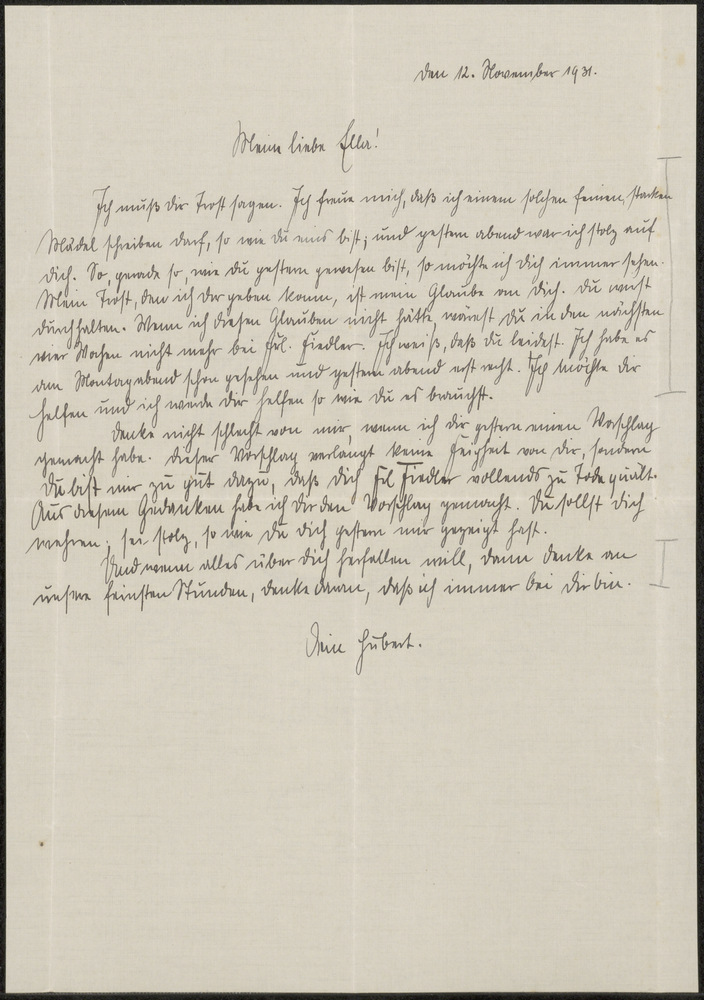 Den 12. November 1931.
Meine liebe Ella!
Ich muß Dir Trost sagen. Ich freue mich, daß ich einem solchen feinen, starken
Mädel schreiben darf, so wie Du eins bist; und gestern abend war ich stolz auf
Dich. So gerade so, wie Du gestern gewesen bist, so möchte ich Dich immer sehen.
Mein Trost, den ich Dir geben kann, ist mein Glaube an Dich. Du mußt
durchhalten. Wenn ich diesen Glauben nicht hätte, wärest Du in den nächsten
vier Wochen nicht mehr bei Frl. Fiedler. Ich weiß, daß Du leidest. Ich habe es
am Montagabend schon gesehen und gestern abend erst recht. Ich möchte Dir
helfen und ich werde Dir helfen so wie Du es brauchst.
Denke nicht schlecht von mir, wenn ich Dir gestern einen Vorschlag
gemacht habe. Dieser Vorschlag verlangt keine Feigheit von Dir, sondern
Du bist mir zu gut dazu, daß Dich Frl Fiedler vollends zu Tode quält.
Aus diesem Gedanken habe ich Dir den Vorschlag gemacht. Du sollst Dich
wehren; sei stolz, so wie Du Dich gestern mir gezeigt hast.
Und wenn alles über Dich herfallen will, dann denke an
unsere feinsten Stunden, denke daran, daß ich immer bei Dir bin.
Dein Hubert.